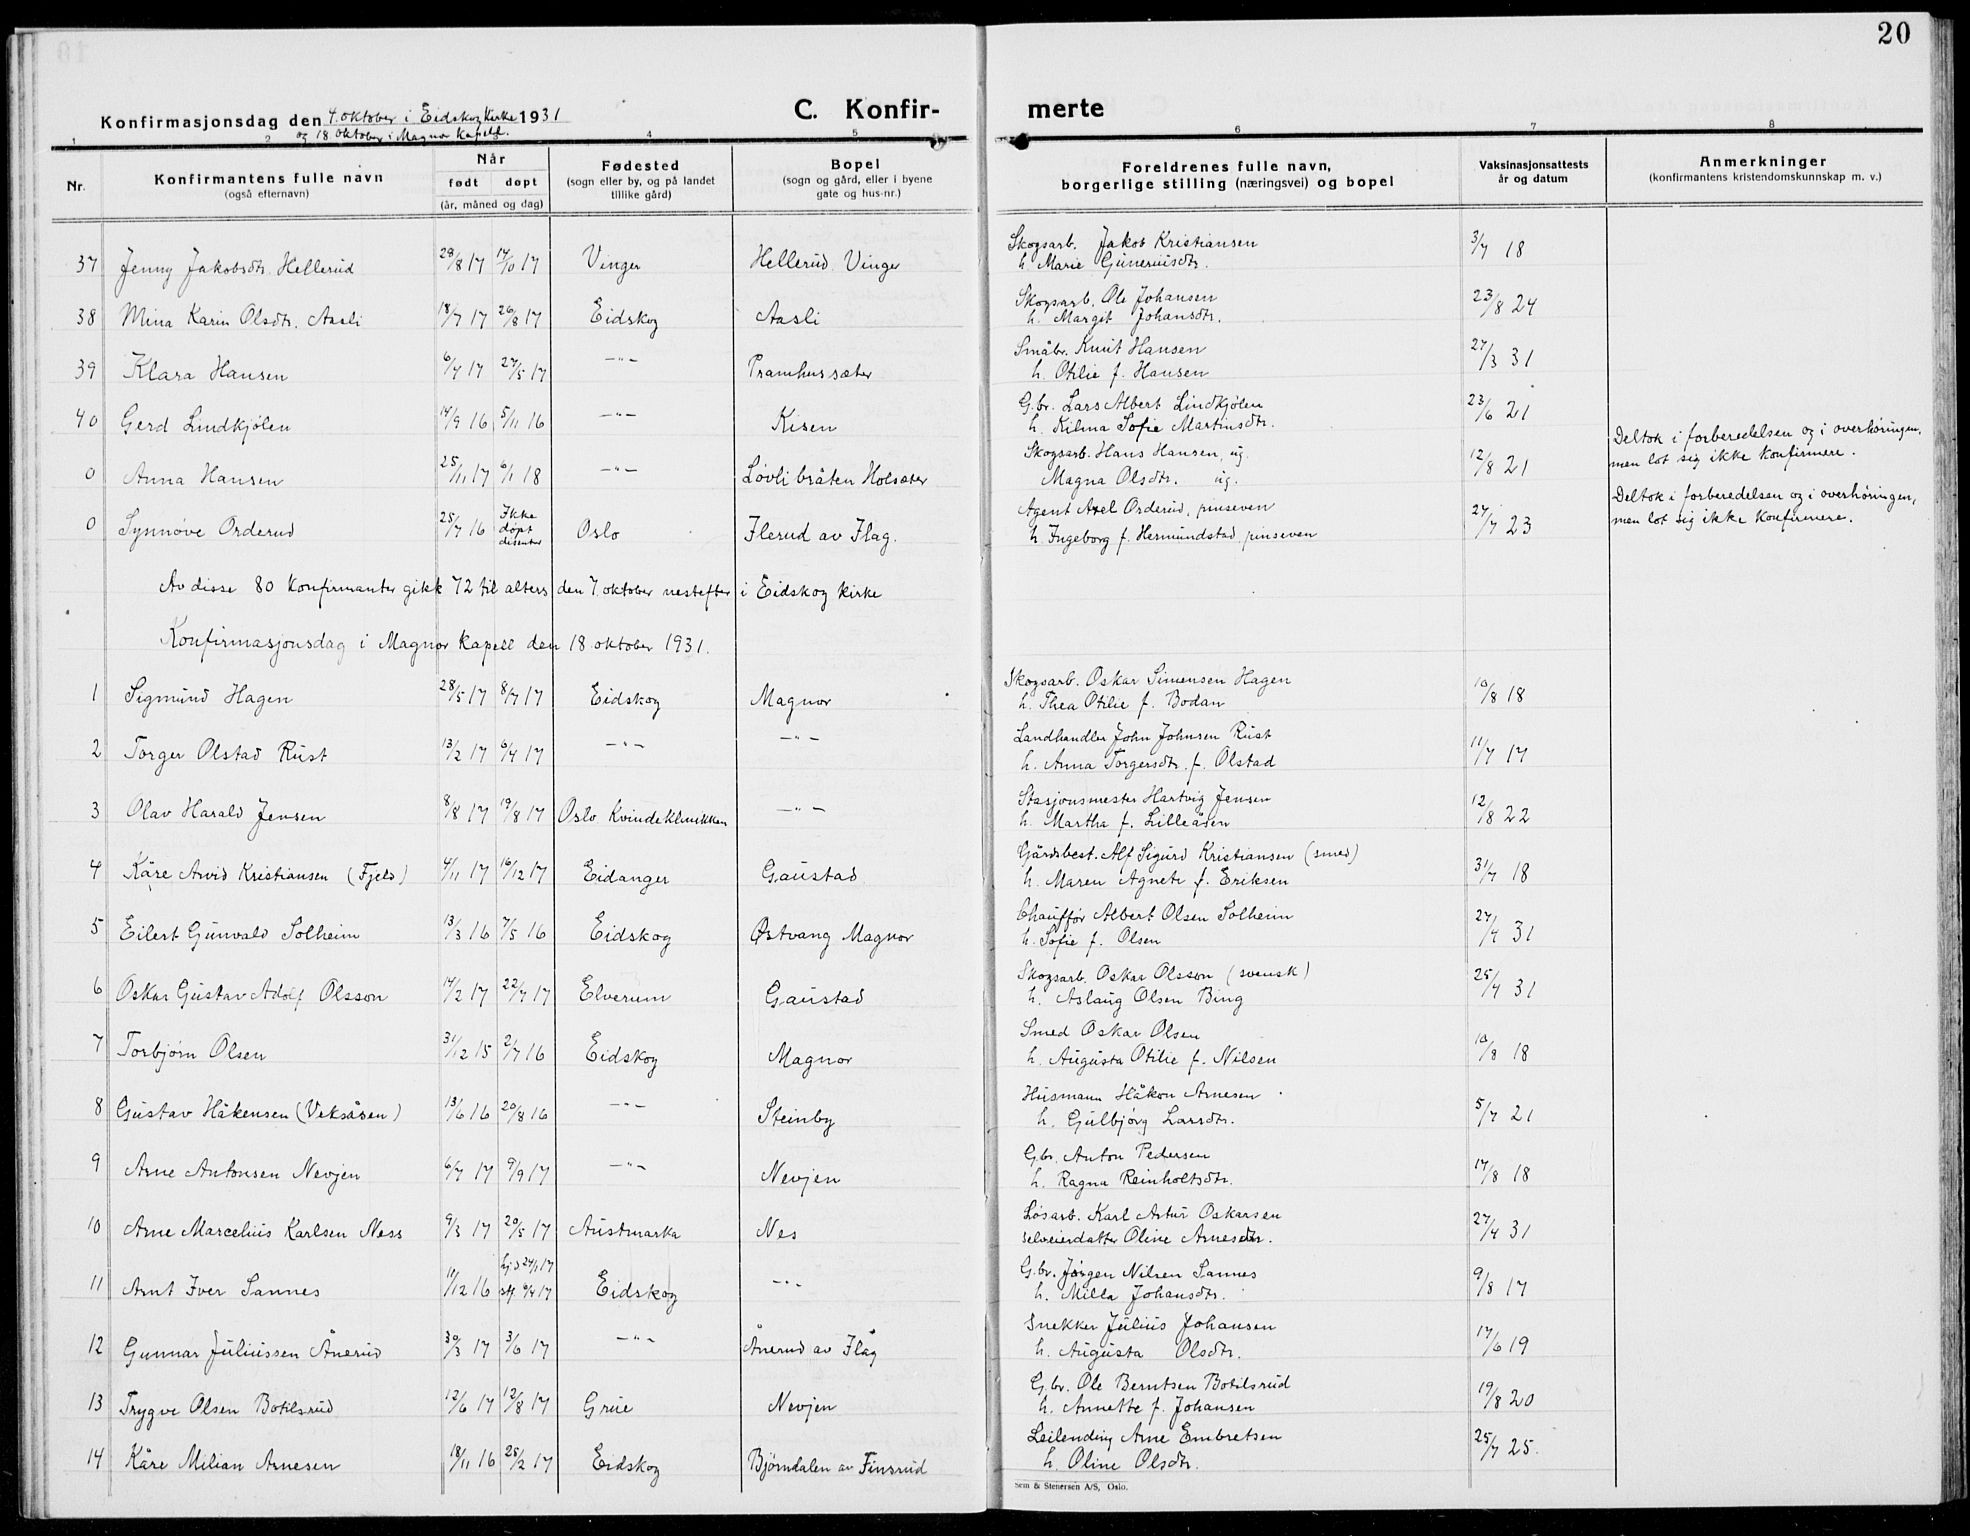 20
Konfirmasjonsdag den 4. oktober i Eidskog Kirke 1931
og 18 oktober i Magnor Kapell.
C. Konfir-
merte
1 2 4 5 6 7 8
Nr. Konfirmantens fulle navn (også efternavn)
Når født døpt (år, måned og dag)
Fødested (sogn eller by, og på landet tillike gård)
Bopel (sogn og gård, eller i byene gate og hus-nr.)
Foreldrenes fulle navn, borgerlige stilling (næringsvei) og bopel
Vaksinasjonsattests år og datum
Anmerkninger (konfirmantens kristendomskunnskap m. v.)
37 Jenny Jakobsdtr. Hellerud 28/8 17 14/10 17 Vinger Hellerud Vinger Skogsarb. Jakob Kristiansen 3/7 18
h. Marie Guneriusdtr.
38 Mina Karin Olsdtr. Aasli 18/7 17 26/8 17 Eidskog Aasli Skogsarb. Ole Johansen 23/8 24
h. Margit Johansdtr.
39 Klara Hansen 6/4 17 27/5 17 —"— Pramhussæter Småbr. Knut Hansen 27/3 31
h. Otilie f. Hansen
40 Gerd Lindkjølen 14/9 16 5/11 16 —"— Kisen G.br. Lars Albert Lindkjølen 23/6 21
h. Kilma Sofie Martinsdtr.
0 Anna Hansen 25/11 17 6/1 18 —"— Løvlibråten Holsæter Skogsarb. Hans Hansen, ug. 12/8 21 Deltok i forberedelsen og i overhøringen,
Magna Olsdtr. ug. men lot sig ikke konfirmere.
0 Synnøve Orderud 25/7 16 Ikke døpt disenter Oslo Flerud av Flag. Agent Axel Orderud, pinseven 27/7 23 Deltok i forberedelsen og i overhøringen,
h. Ingeborg f. Hermundstad pinseven men lot sig ikke konfirmere.
Av disse 80 konfirmanter gikk 72 til alters den 7. oktober nestefter i Eidskog kirke
Konfirmasjonsdag i Magnor kapell den 18 oktober 1931.
1 Sigmund Hagen 28/5 17 8/7 17 Eidskog Magnor Skogsarb. Oskar Simensen Hagen 10/8 18
h. Thea Otilie f. Bodan
2 Torger Olstad Rust 13/2 17 6/4 17 —"— —"— Landhandler John Johnsen Rust 11/7 17
h. Anna Torgersdtr. f. Olstad
3 Olav Harald Jensen 8/8 17 19/8 17 Oslo Kvindeklinikken —"— Stasjonsmester Hartvig Jensen 12/8 22
h. Martha f. Lilleåden
4 Kåre Arvid Kristiansen (Fjeld) 4/11 17 16/12 17 Eidanger Gaustad Gårdsbest. Alf Sigurd Kristiansen (smed) 31/7 18
h. Maren Agnete f. Eriksen
5 Eilert Gunvald Solheim 13/3 16 7/5 16 Eidskog Østvang Magnor Chauffør Albert Olsen Solheim 27/4 31
h. Sofie f. Olsen
6 Oskar Gustav Adolf Olsson 14/2 17 22/7 17 Elverum Gaustad Skogsarb. Oskar Olsson (svensk) 25/4 31
h. Aslaug Olsen Bing
7 Torbjørn Olsen 31/12 15 2/7 16 Eidskog Magnor Smed Oskar Olsen 10/8 18
h. Augusta Otilie f. Nilsen
8 Gustav Håkensen (Veksåsen) 13/6 16 20/8 16 —"— Steinby Husmann Håkon Arnesen 5/7 21
h. Gulbjørg Larsdtr.
9 Arne Antonsen Nevjen 6/7 17 9/9 17 —"— Nevjen Gbr. Anton Pedersen 17/8 18
h. Ragna Reinholtsdtr.
10 Arne Marcelius Karlsen Ness 9/3 17 20/5 17 Austmarka Nes Løsarb. Karl Artur Oskarsen 27/4 31
selveierdatter Oline Arnesdtr.
11 Arnt Iver Sannes 11/12 16 hj.d 24/1 17 stf 9/4 17 Eidskog —"— G.br. Jørgen Nilsen Sannes 9/8 17
h. Milla Johansdtr.
12 Gunnar Juliussen Ånerud 30/3 17 3/6 17 —"— Ånerud av Flåg Snekker Julius Johansen 17/6 19
h. Augusta Olsdtr.
13 Trygve Olsen Botilsrud 12/6 17 12/8 17 Grue Nevjen G.br. Ole Berntsen Botilsrud 19/8 20
h. Annette f. Johansen
14 Kåre Milian Arnesen 18/11 16 25/2 17 Eidskog Bjørndalen av Finsrud Leilending Arne Embretsen 25/7 25.
h. Oline Olsdtr.
Sem & Stenersen A/S, Oslo.